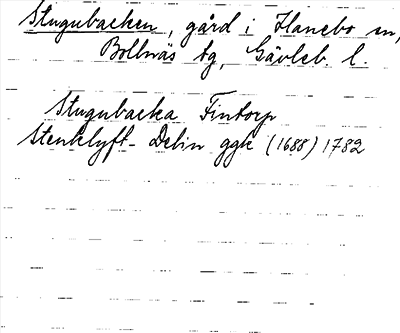 Stugubacken, gård i Hanebo sn,
Bollnäs tg, Gävleb. l.
Stugubacka Fintorp
Stenklyft- Delin ggk (1688) 1782